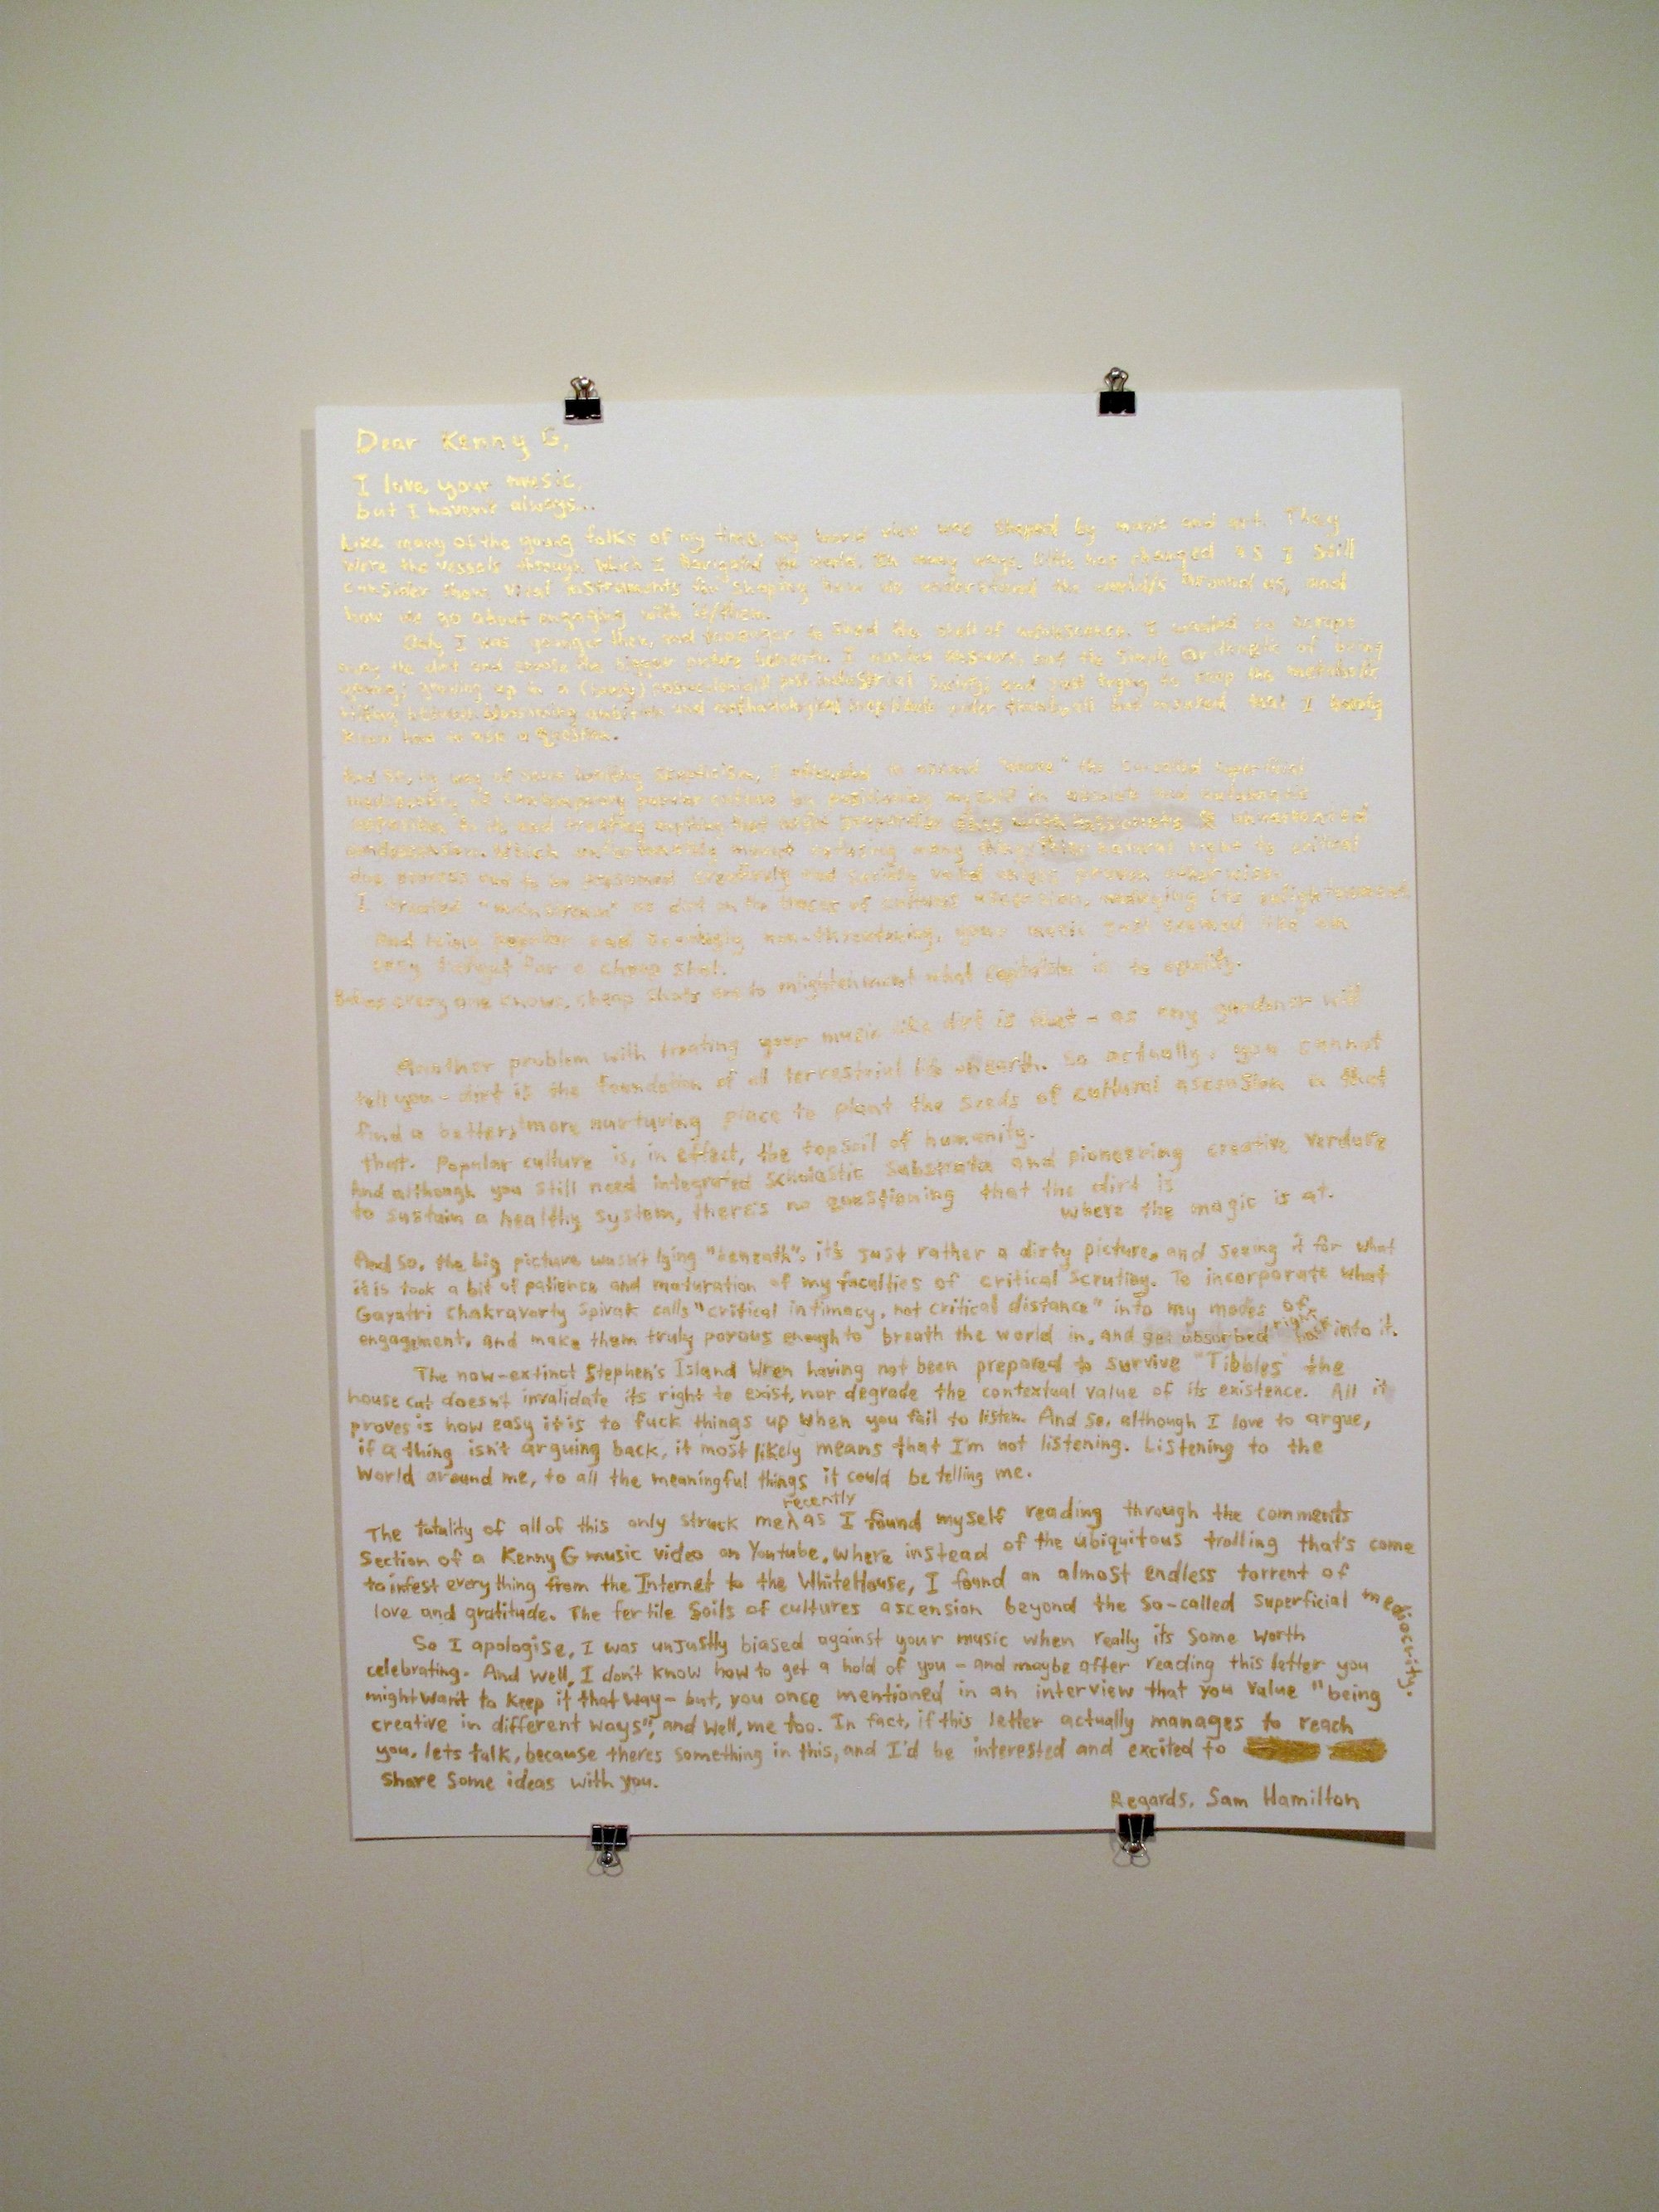 Dear Kenny G,
I love your music,
but I haven't always...
Like many of the young folks of my time, my world view was shaped by music and art. They
were the vessels through which I navigated the world. In many ways, little has changed as I still
consider them vital instruments for shaping how we understand the world/s around us, and
how we go about engaging with it/them.
Only I was younger then, and to shed the shell of adolescence. I wanted to scrape
away the dirt and the bigger picture beneath. I wanted and the simple of being
growing up in a post industrial society, and just trying to the metabolic
ambition and methodological that I barely
knew how to ask a question.
And so, by way of some healthy skepticism, I the so-called superficial
mediocrity of contemporary popular culture by positioning myself in
to it, and treating anything that might
condescension. Which unfortunately meant refusing many things their natural right to critical
due process and to be presumed and valid unless proven otherwise.
I treated "mainstream" as dirt on the of cultures ascension, its enlightenment.
And being popular and seemingly non-threatening, your music just seemed like an
easy target for a cheap shot.
But as every one knows, cheap shots are to enlightenment what capitalism is to equality.
Another problem with treating your music like dirt is that - as any gardener will
tell you - dirt is the foundation of all terrestrial life on earth. So actually, you cannot
find a better/more nurturing place to plant the seeds of cultural ascension in that
that. Popular culture is, in effect, the topsoil of humanity.
And although you still need integrated scholastic substrate and pioneering creative verdure
to sustain a healthy system, there's no questioning that the dirt is
where the magic is at.
And so, the big picture wasn't lying "beneath", it's just rather a dirty picture, and seeing it for what
it is took a bit of patience and maturation of my faculties of critical scrutiny. To incorporate what
Gayatri Chakravorty Spivak calls "critical intimacy, not critical distance" into my modes of
engagment, and make them truly porous enough to breath the world in, and get absorbed right back into it.
The now-extinct Stephen's Island Wren having not been prepared to survive "Tibbles" the
house cat doesn't invalidate its right to exist, nor degrade the contextual value of its existence. All it
proves is how easy it is to fuck things up when you fail to listen. And so, although I love to argue,
if a thing isn't arguing back, it most likely means that I'm not listening. Listening to the
World around me, to all the meaningful things it could be telling me.
recently
The totality of all of this only struck me as I found myself reading through the comments
Section of a Kenny G music video on Youtube, where instead of the ubiquitous trolling that's come
to infest everything from the Internet to the WhiteHouse, I found an almost endless torrent of
love and gratitude. The fertile soils of cultures ascension beyond the so-called superficial mediocrity.
So I apologise, I was unjustly biased against your music when really its some worth
celebrating. And well, I don't know how to get a hold of you - and maybe after reading this letter you
might want to keep it that way - but, you once mentioned in an interview that you value "being
creative in different ways", and well, me too. In fact, if this letter actually manages to reach
you, lets talk, because theres something in this, and I'd be interested and excited to
share some ideas with you.
Regards, Sam Hamilton